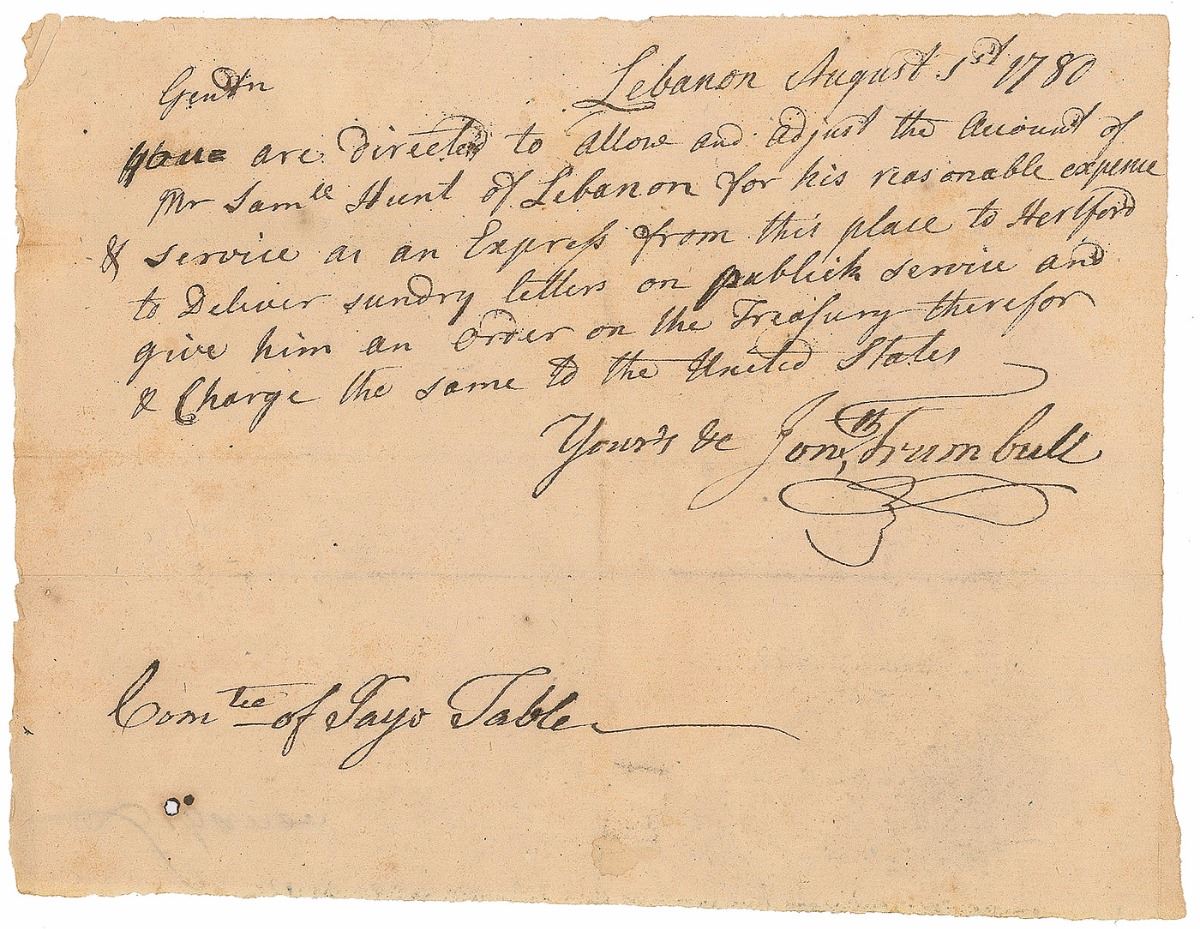 Lebanon August 1st 1780
Gentn
You are Directed to Allow and Adjust the Account of
Mr Samll Hunt of Lebanon for his reasonable expense
& service as an Express from this place to Hertford
to Deliver sundry letters on publick service and
give him an Order on the Treasury therefor
& Charge the same to the United States
Your's &c Jonth Trumbull
Comtee of Pay Table